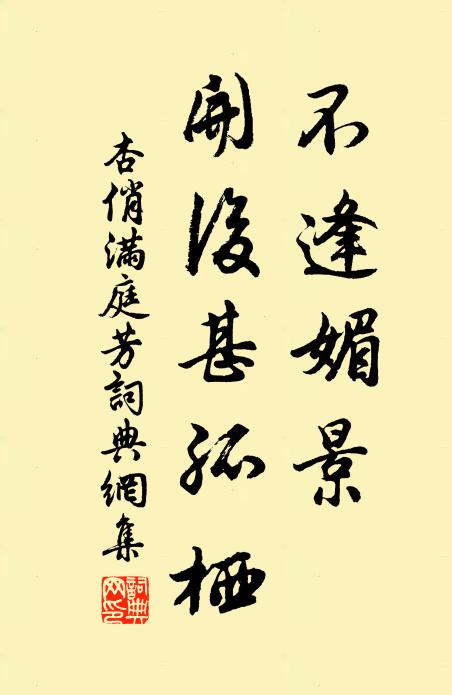 不逢媚景
開後甚孤栖
杏俏滿庭芳詞典網集
詞典網印